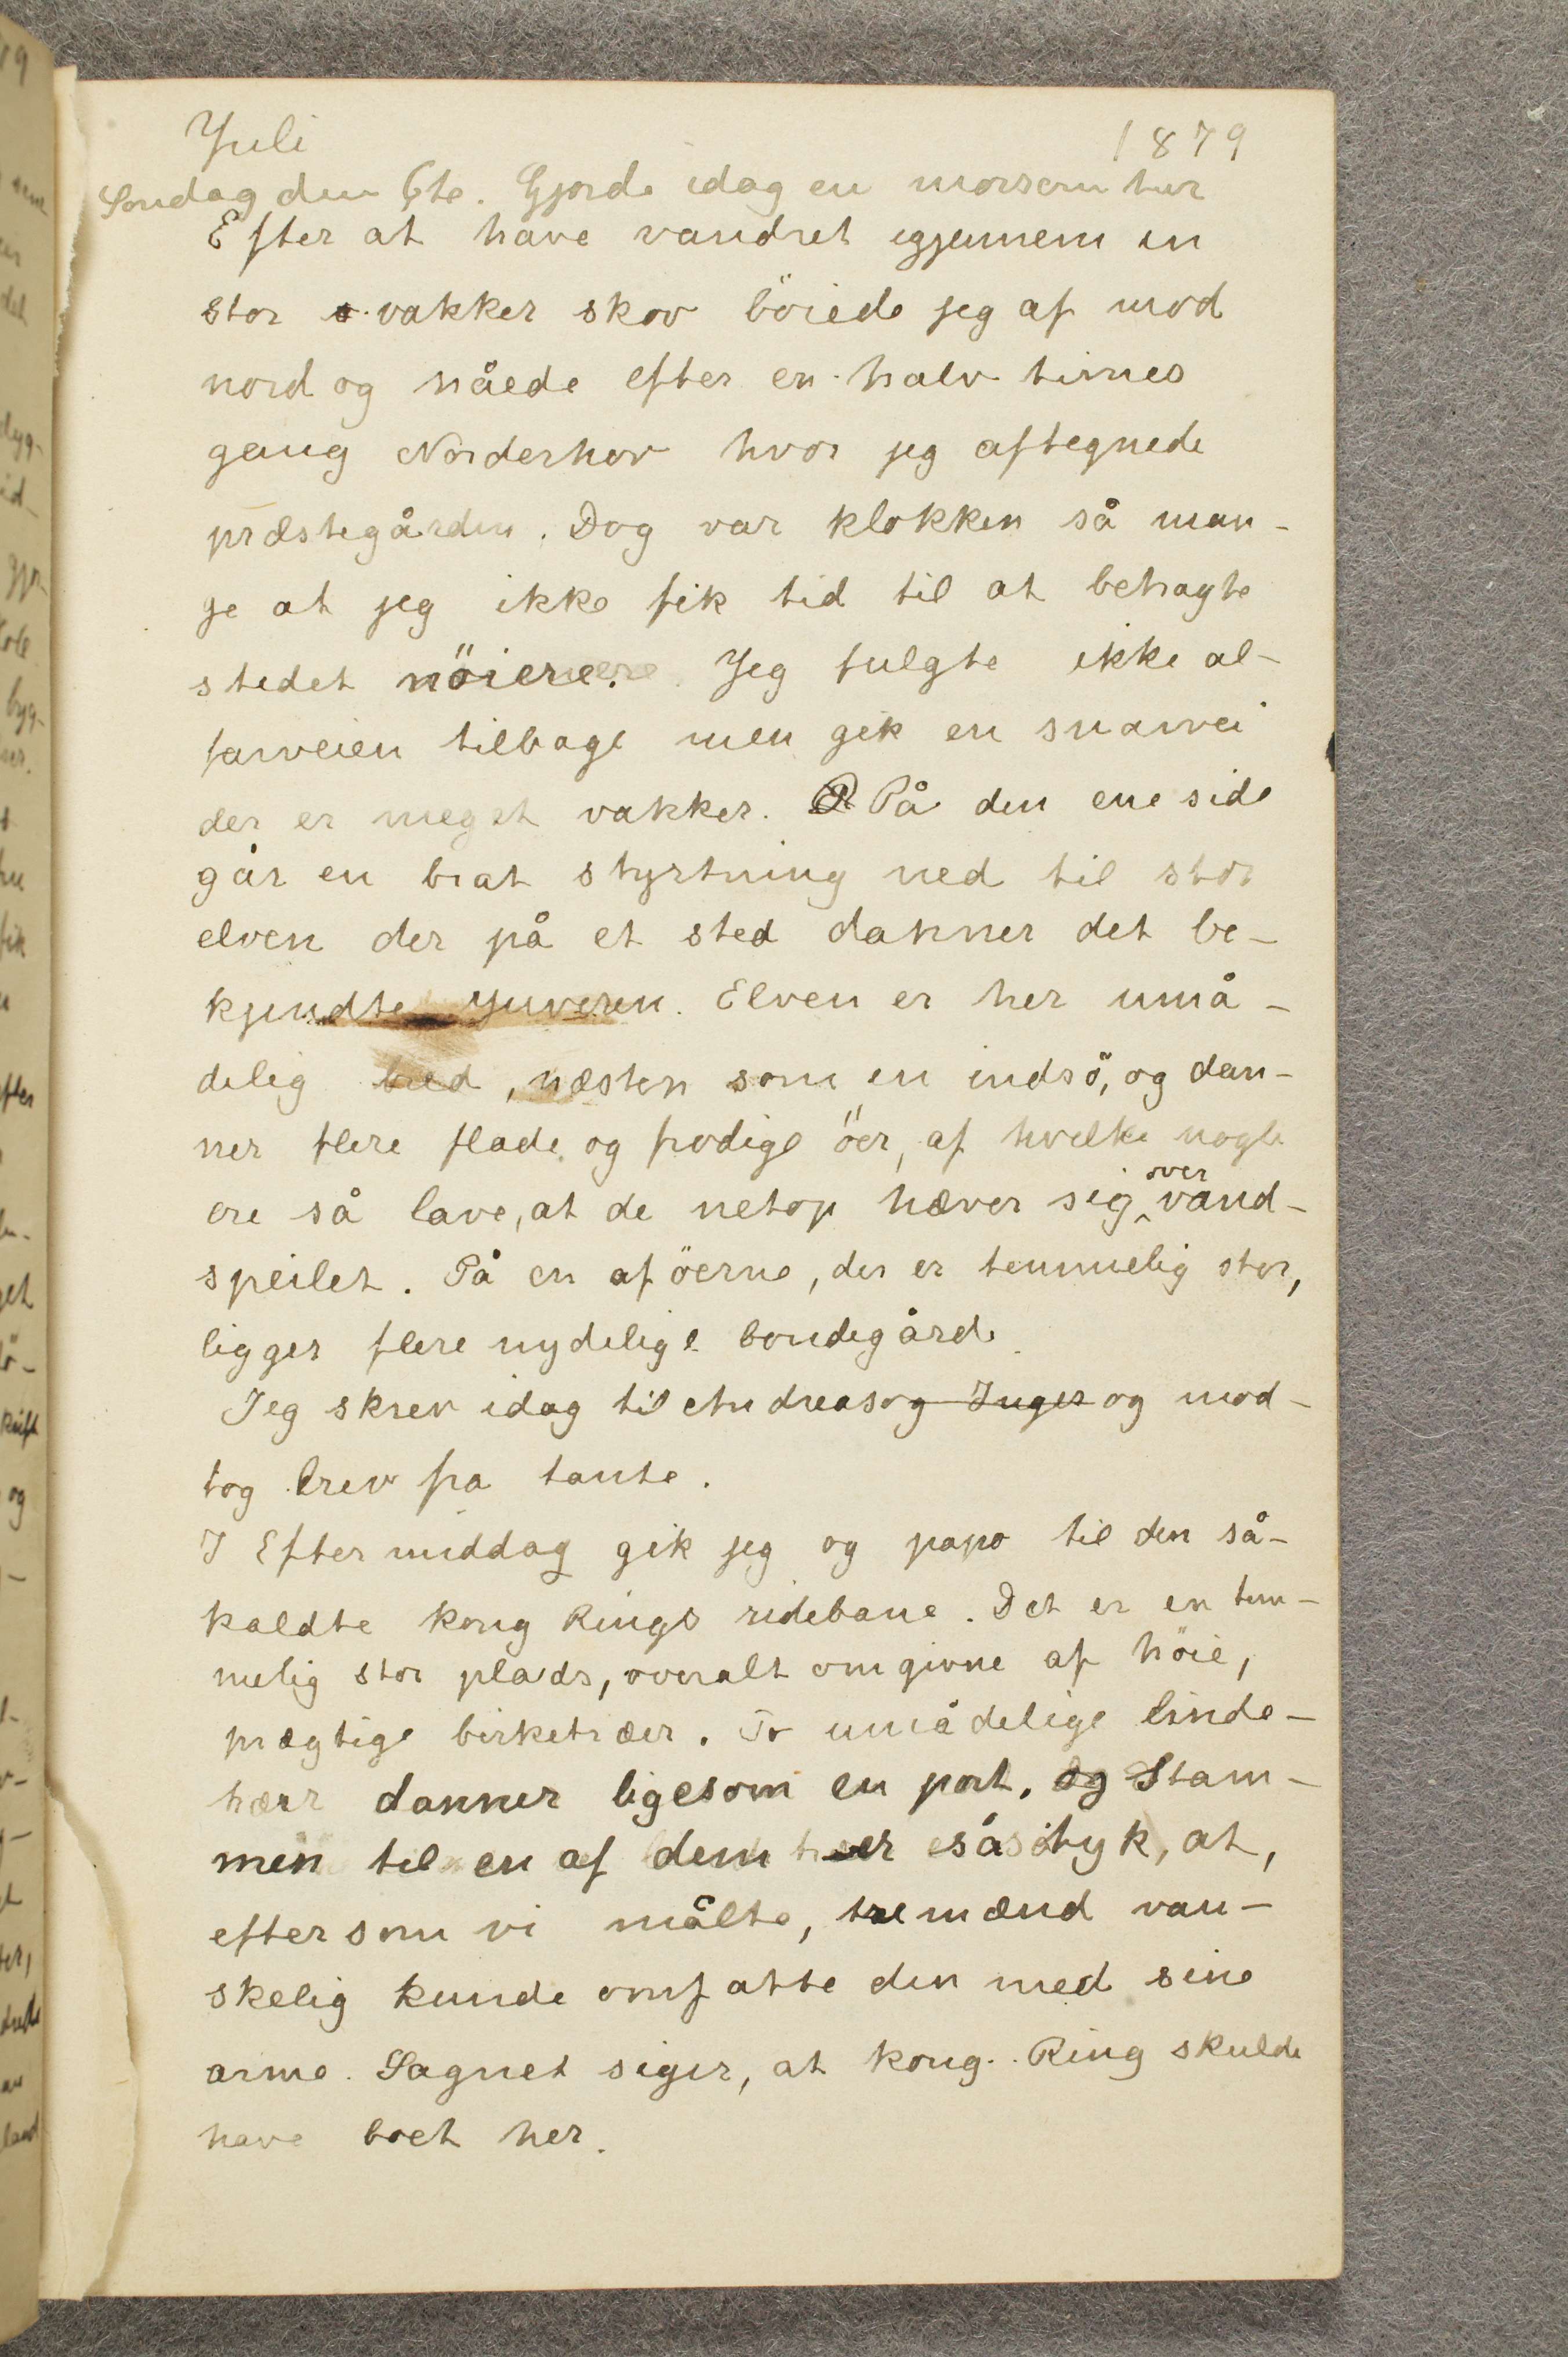 Juli 1879
Søndag den 6te. Gjorde idag en morsom tur
Efter at have vandret igjennem en
stor vakker skov böiede jeg af mod
nord og nåede efter en halv times
gang Norderhov hvor jeg aftegnede
præstegården. Dog var klokken så man-
ge at jeg ikke fik tid til at betragte
stedet nöiere. Jeg fulgte ikke al-
farveien tilbage men gik en snarvei
der er meget vakker. På den ene side
går en brat styrtning ned til stor
elven der på et sted danner det be-
kjendte Juveren. Elven er her umå-
delig bred, næsten som en indsö, og dan-
ner flere flade og frodige öer, af hvilke nogle
ere så lave, at de netop hæver sig over vand-
speilet. På en af öerne, der er temmelig stor,
ligger flere nydelige bondegårde.
Jeg skrev idag til Andreas og Inger og mod-
tog brev fra tante.
I Eftermiddag gik jeg og papa til den så-
kaldte kong Rings ridebane. Det er en tem-
melig stor plads, overalt omgivne af höie,
prægtige birketræer. To umådelige linde-
trærr danner ligesom en port. og Stam-
men til en af dem er så tyk, at,
eftersom vi målte, tre mænd van-
skelig kunde omfatte den med sine
arme. Sagnet siger, at kong Ring skulde
have boet her.